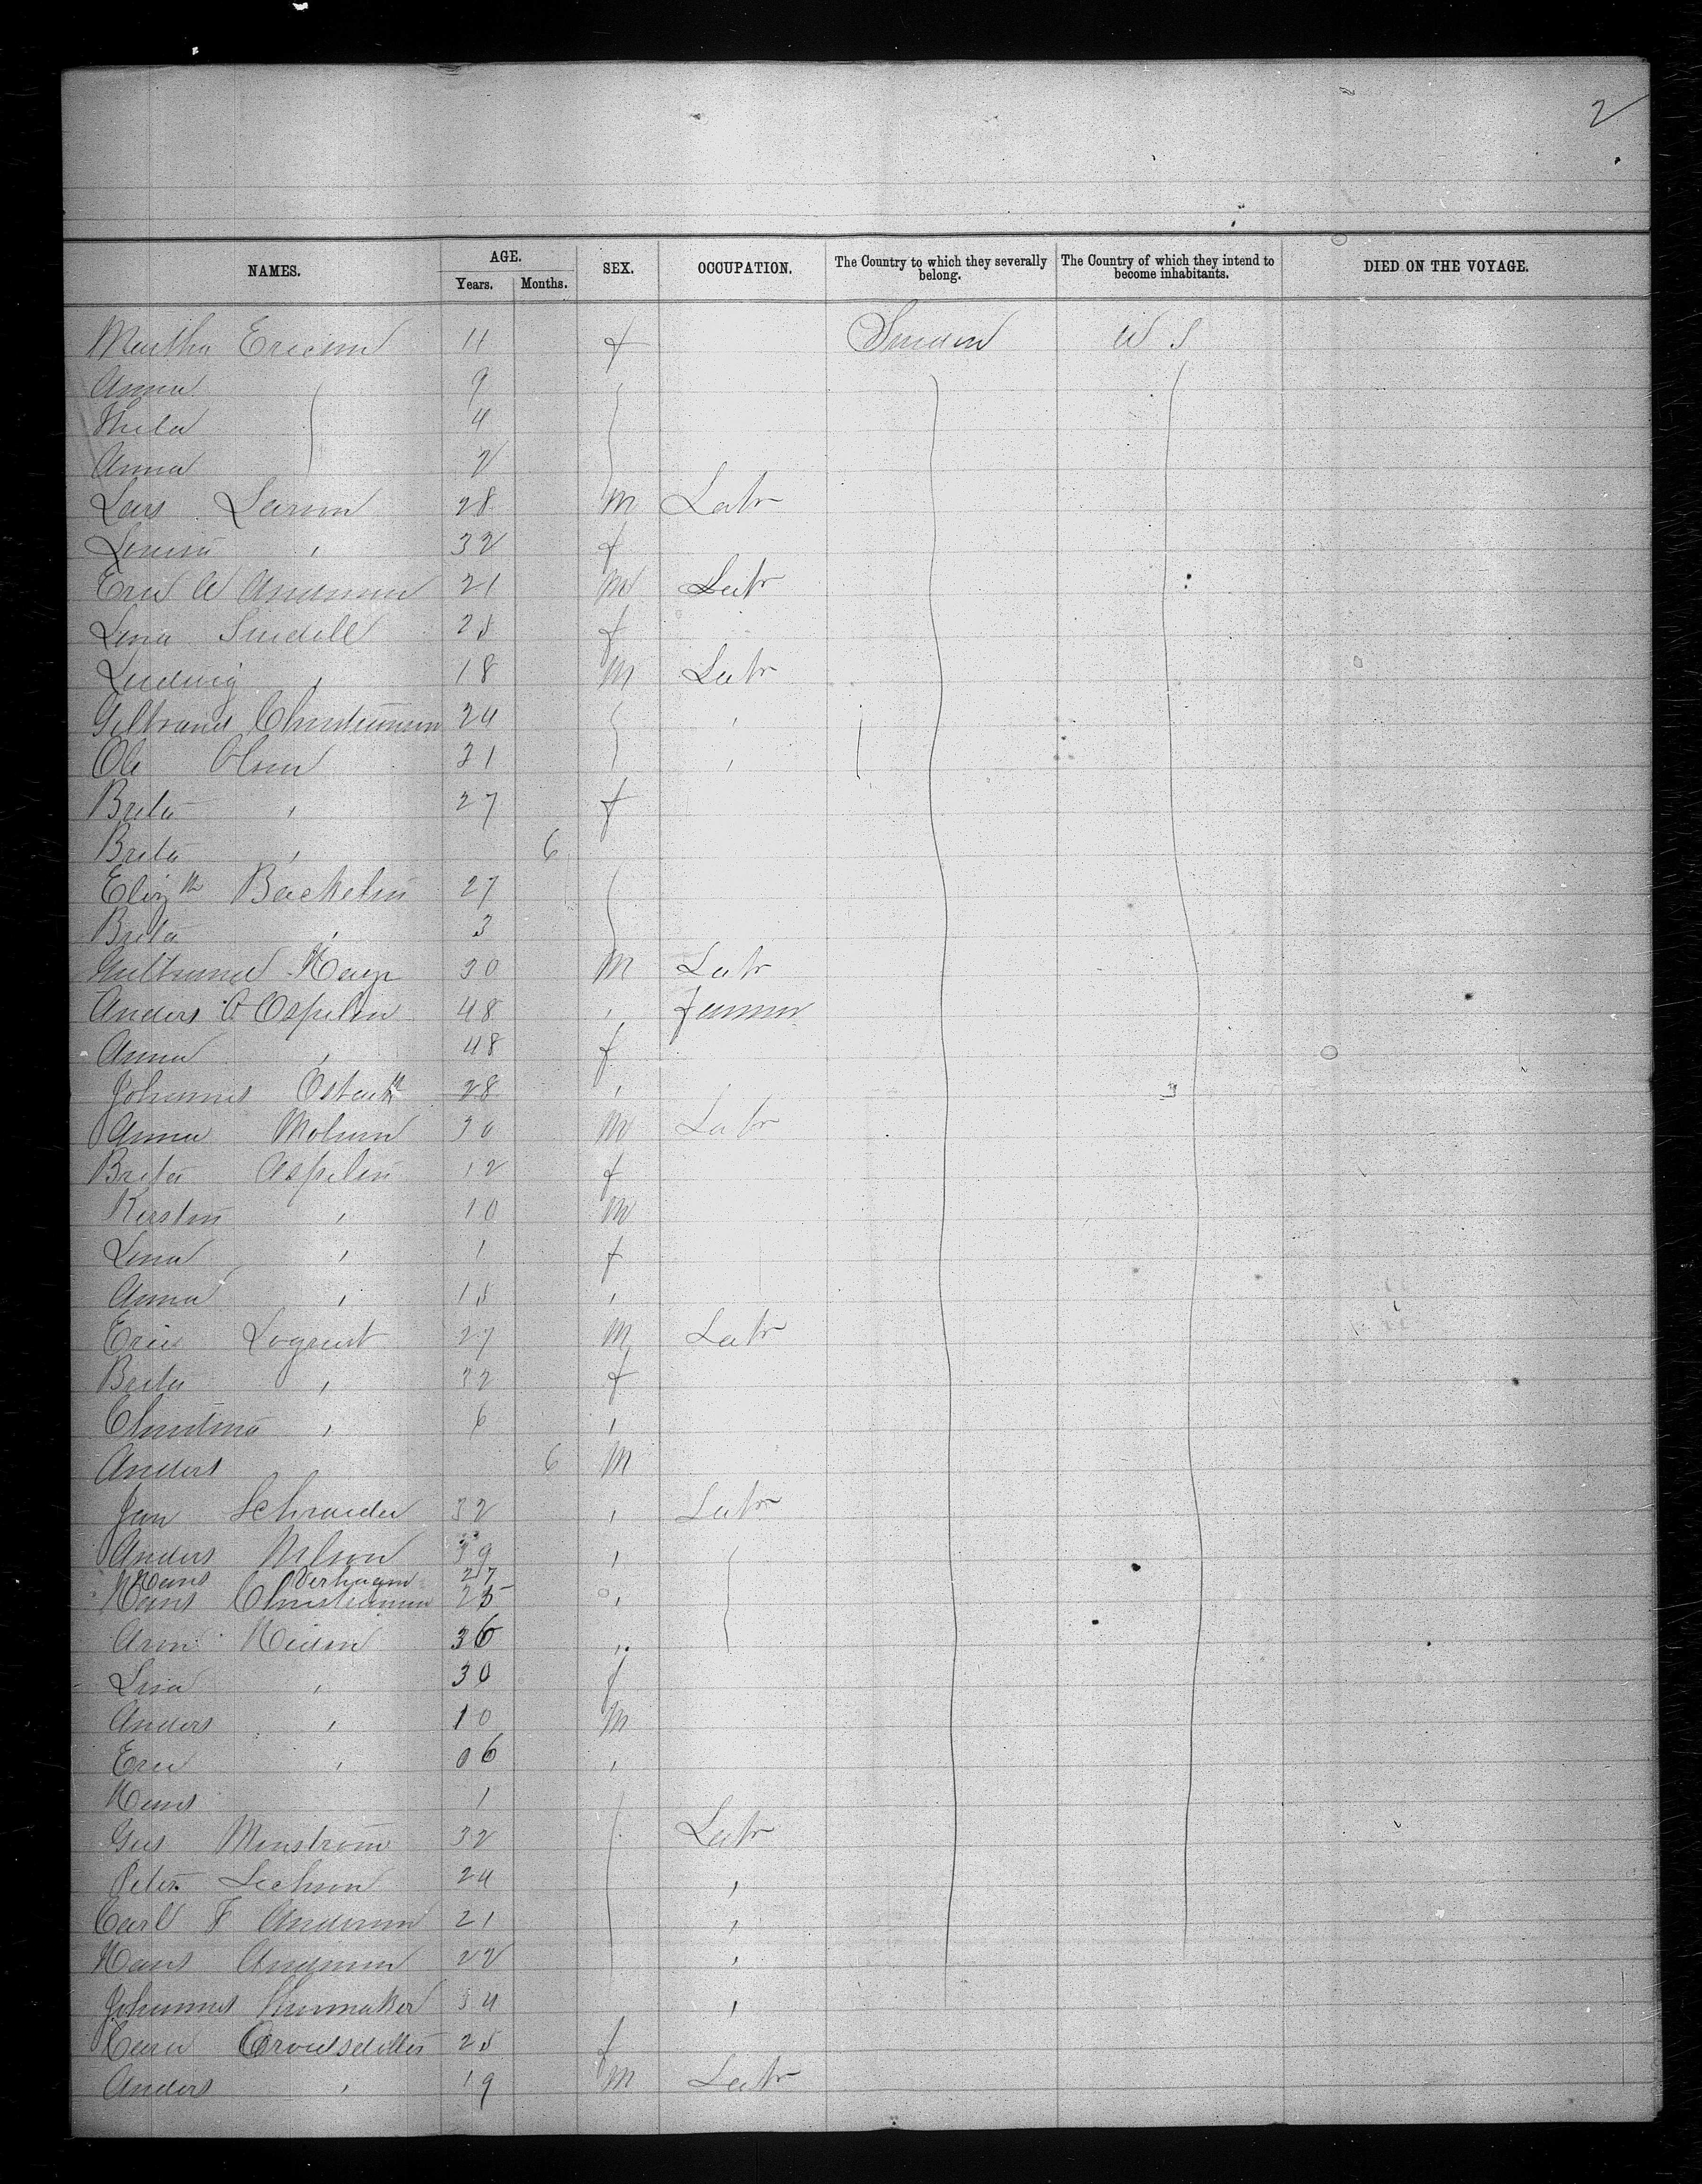 2
NAMES. AGE. SEX. OCCUPATION. The Country to which they severally belong. The Country of which they intend to become inhabitants. DIED ON THE VOYAGE.
Years. Months.
Martha Ericson 11 f Sweden U S
Anna 9
4
Anna 2
Lars Larson 28 M Labr
Louisa " 32 f
Eric A Anderson 21 M Labr
Lena 25 f
Ludwig " 18 M Labr
Christianson 24 "
Ole Olson 31 "
Brita " 27 f
Brita " 6
Elizth Backelin 27
Brita " 3
30 M Labr
Anders O Ospelin 48 " farmer
Anna " 48 f
Johannes 28 "
Anna 30 M Labr
Brita Aspelin 12 f
Kerstin " 10 M
Lena " 1 f
Anna " 15 "
Eric Logrist 27 M Labr
Brita " 32 f
Christina " 6 "
Anders 6 M
Jan Schrader 32 " Labr
Anders Nelson 39 "
Hans Verhaam 27
Hans Christianson 25 "
36 "
Lisa " 30 f
Anders " 10 M
Eric " 06 "
Hans 1
Gus Monstrom 32 Labr
Peter 24 "
Carl F Anderson 21 "
Hans Anderson 22 "
Johannes 34 "
25 f
Anders " 19 M Labr